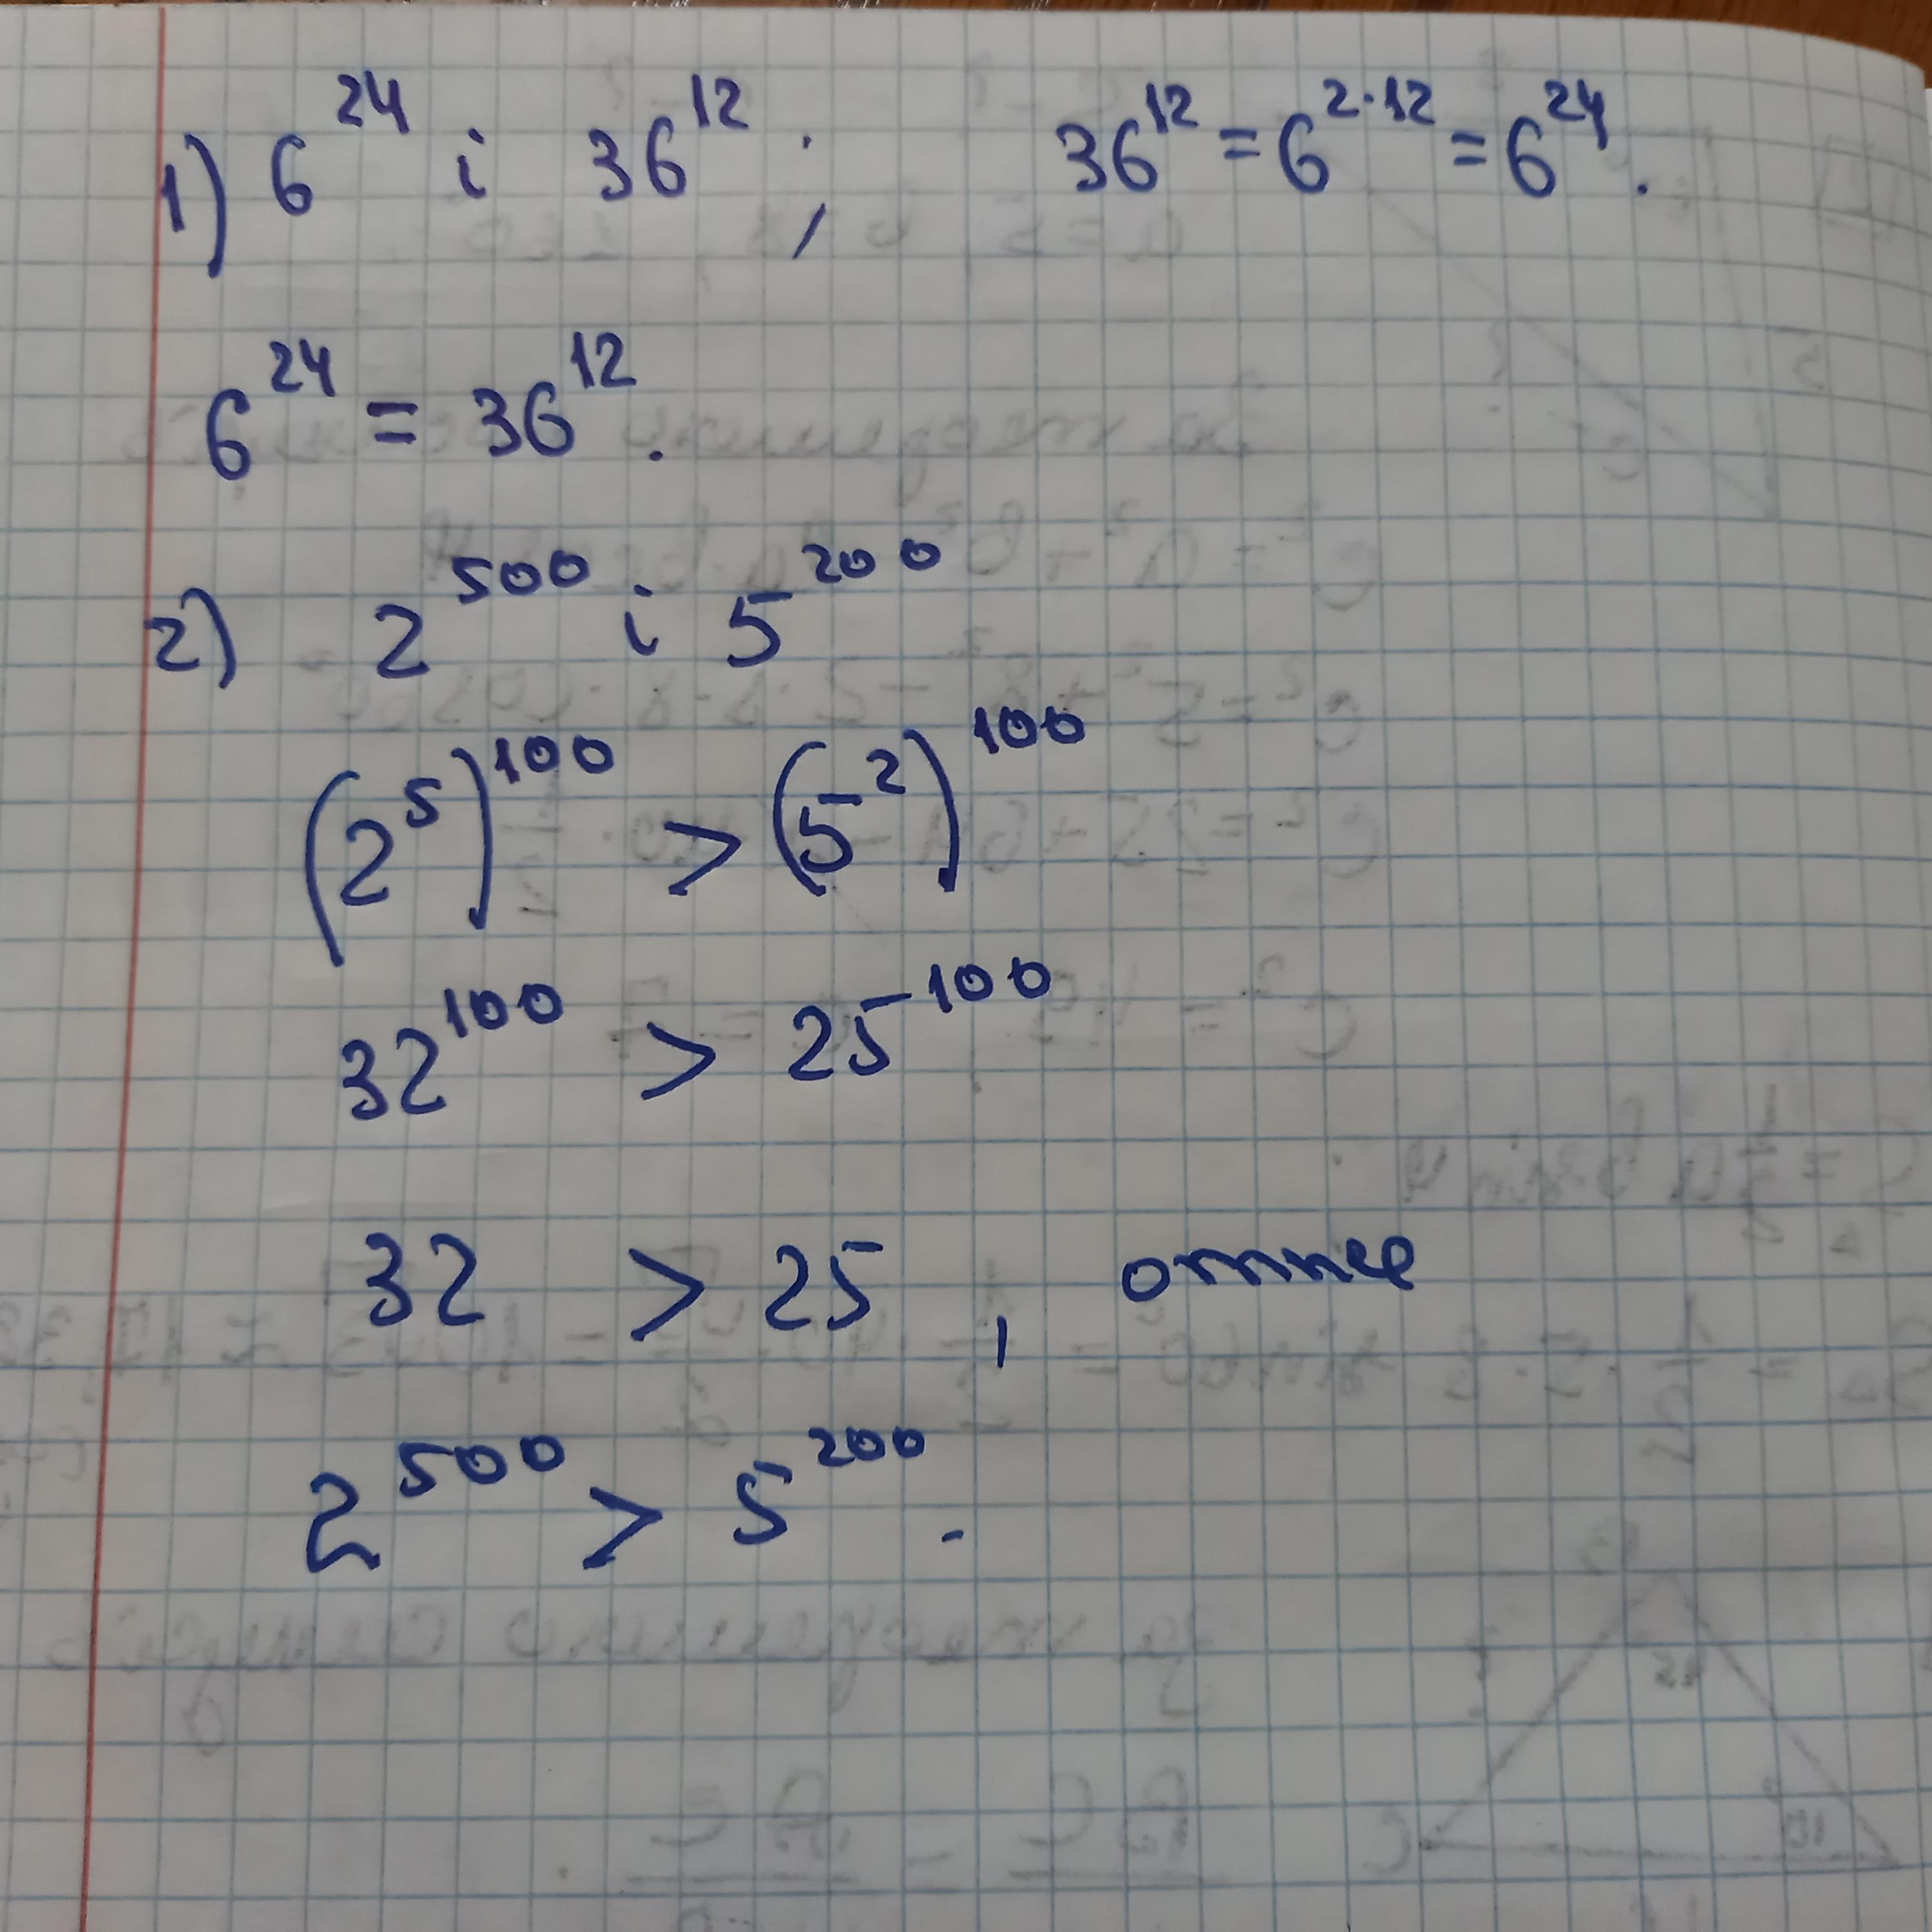 1) 6^24 і 36^12; 36^12 = 6^2·12 = 6^24.
6^24 = 36^12.
2) 2^500 і 5^200
(2^5)^100 > (5^2)^100
32^100 > 25^100
32 > 25, отже
2^500 > 5^200.